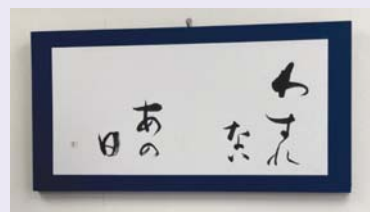 わすれ
ない
あの
日